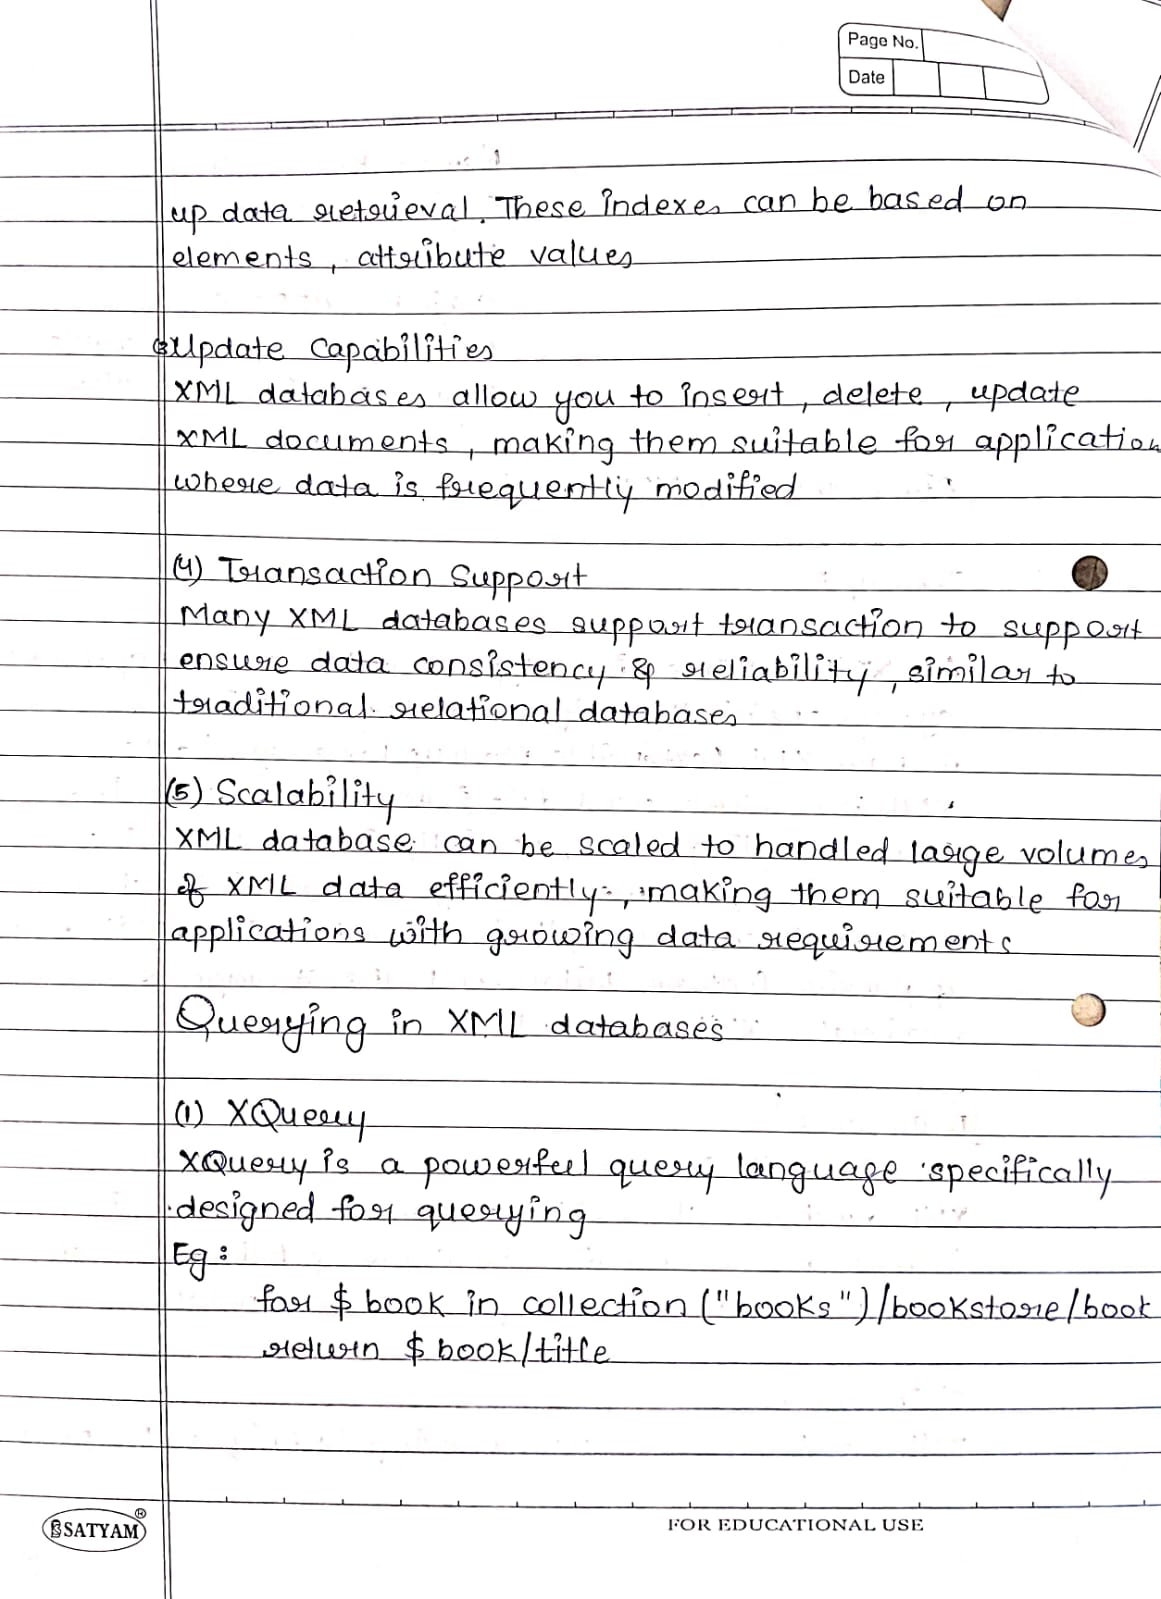 Page No.
Date
up data retrieval. These indexes can be based on
elements, attribute values
(3) Update Capabilities
XML databases allow you to insert, delete, update
XML documents, making them suitable for application
where data is frequently modified
(4) Transaction Support
Many XML databases support transaction to support
ensure data consistency & reliability, similar to
traditional relational databases
(5) Scalability
XML database can be scaled to handled large volumes
of XML data efficiently, making them suitable for
applications with growing data requirements
Querying in XML databases
(1) XQuery
XQuery is a powerful query language specifically
designed for querying
Eg:
for $ book in collection ("books")/bookstore/book
return $ book/title
SATYAM®
FOR EDUCATIONAL USE